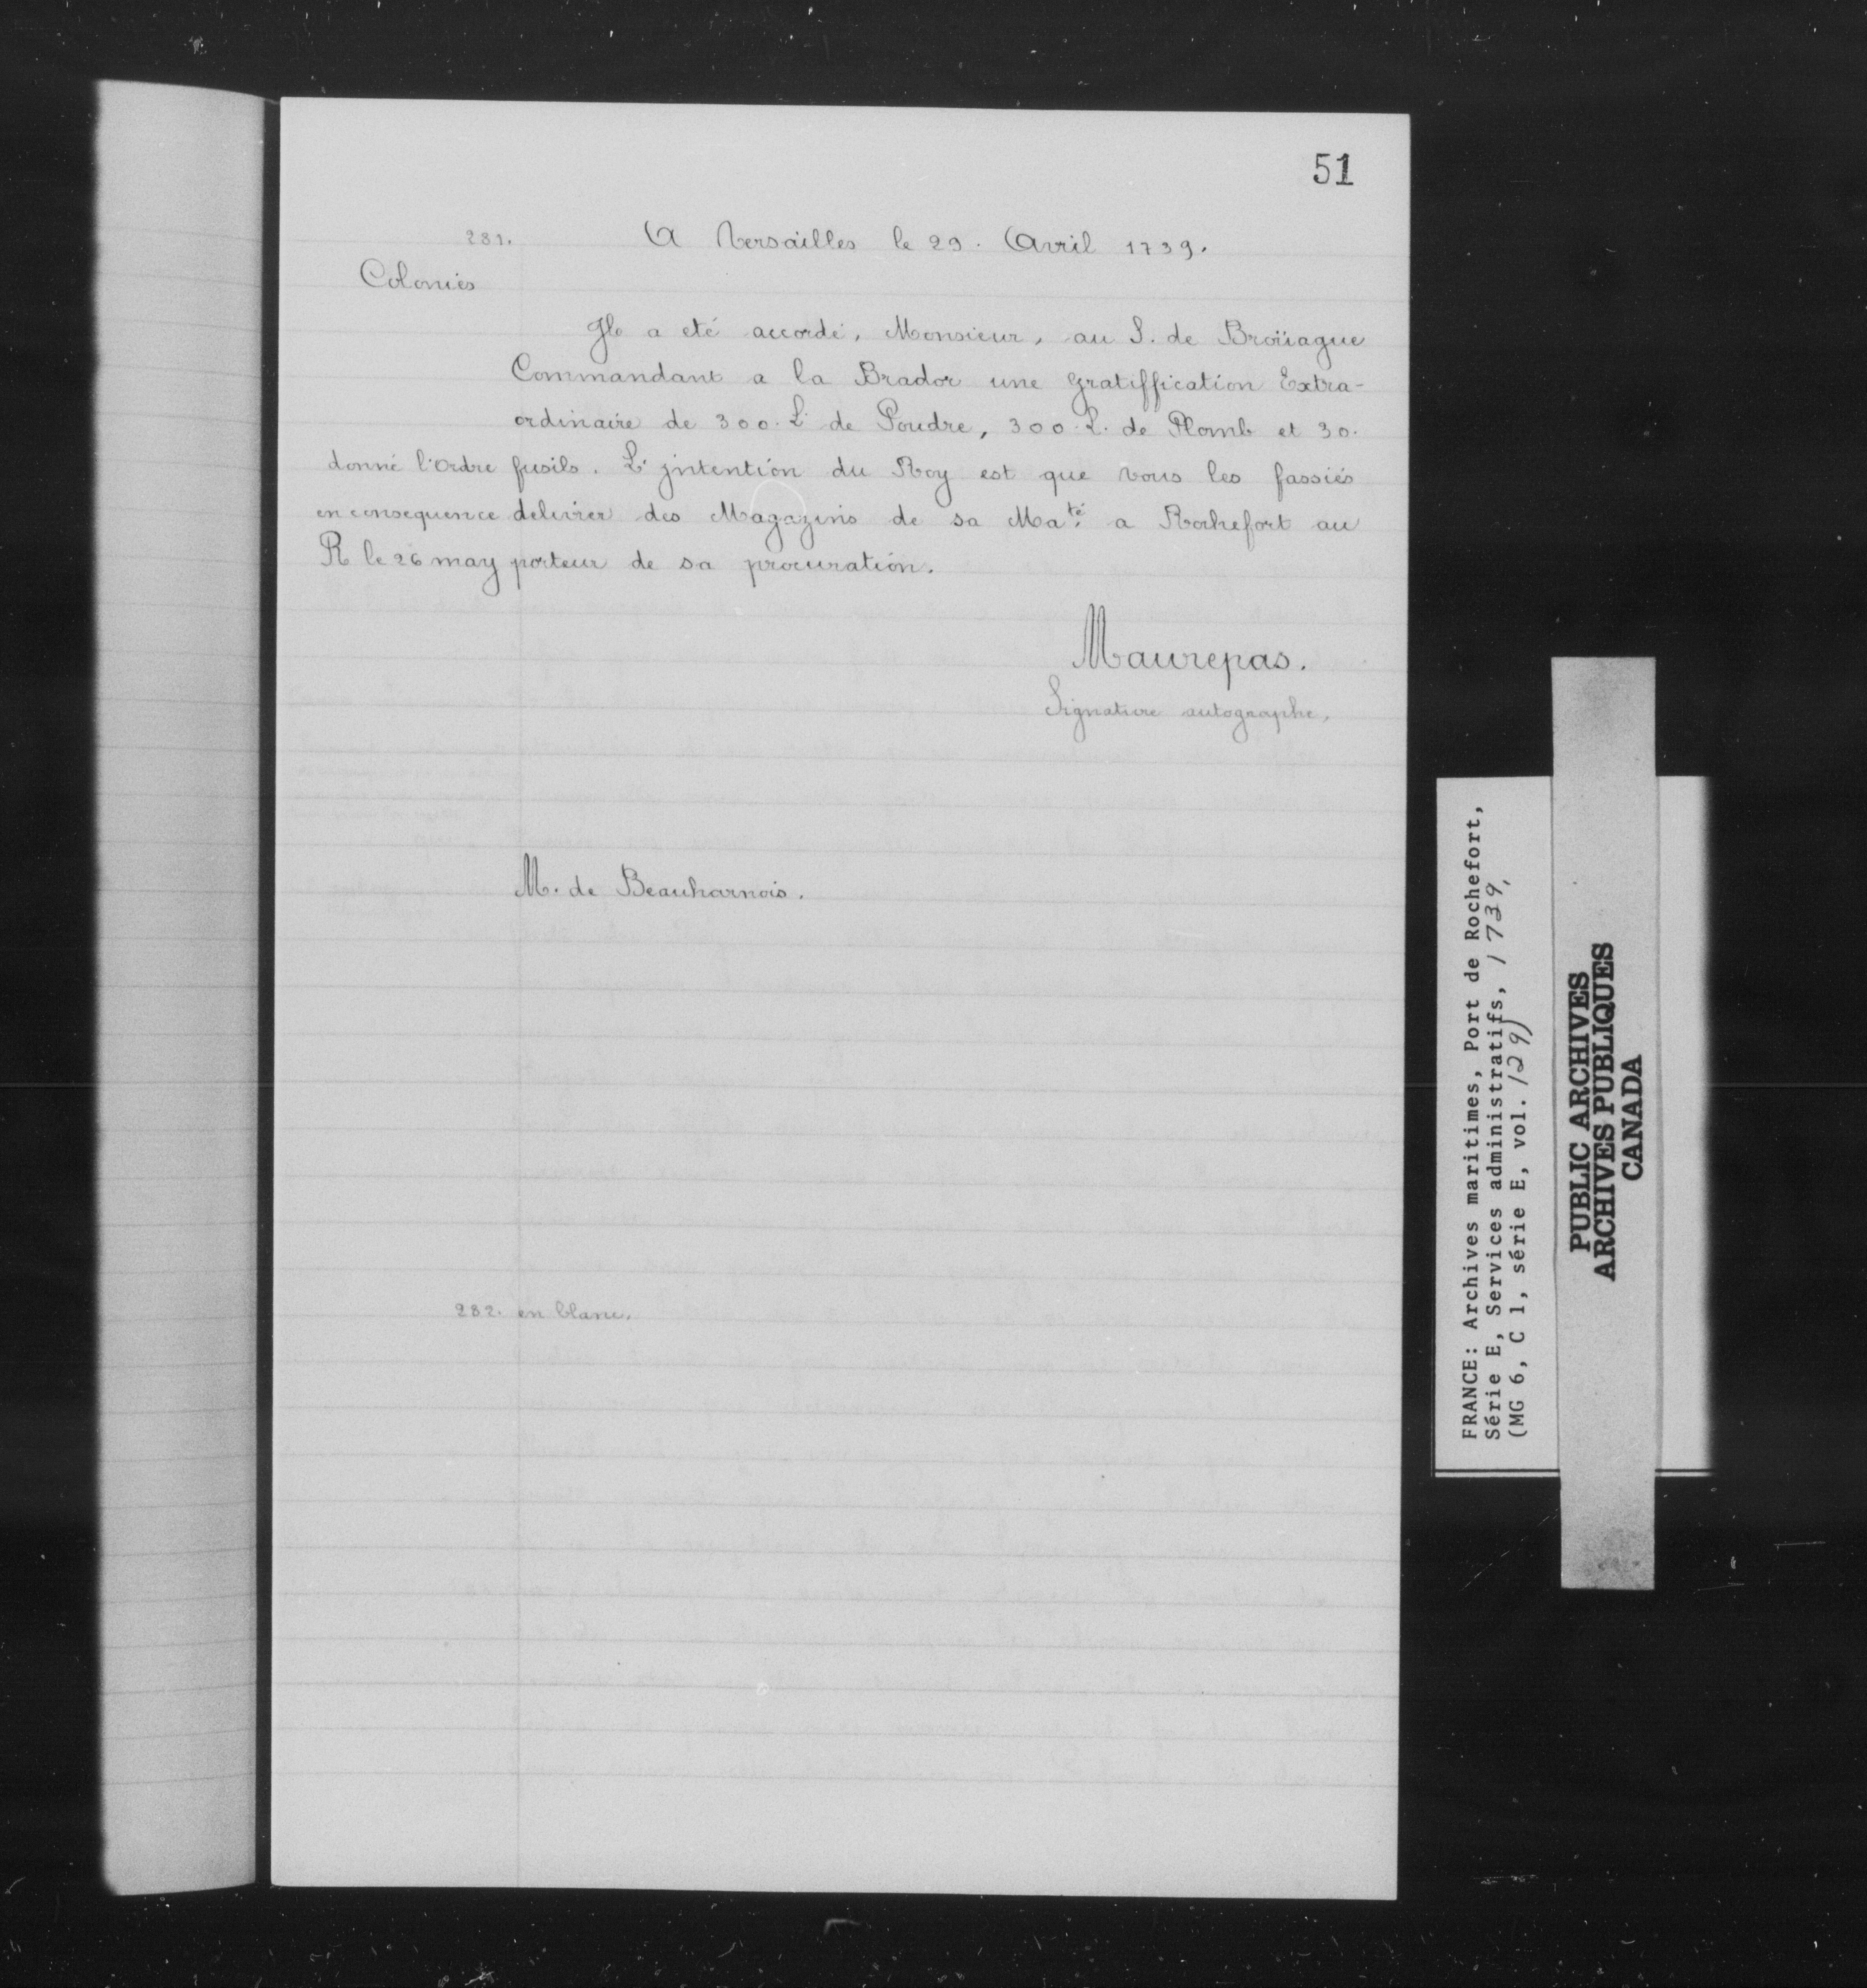 51
281.
A Versailles le 29. Avril 1739.
Colonies
Il a eté accordé, Monsieur, au S. de Broüague
Commandant a la Brador une gratiffication Extra-
ordinaire de 300. L. de Poudre, 300. L. de Plomb et 30.
fusils. L'jntention du Roy est que vous les fassiés
delivrer des Magazins de sa Ma.té a Rochefort au
porteur de sa procuration.
donné l'ordre
en consequence
R le 26 may
Maurepas.
Signature autographe.
M. de Beauharnois.
282. en blanc.
FRANCE: Archives maritimes, Port de Rochefort,
Série E, Services administratifs, 1739,
(MG 6, C 1, série E, vol. 129)
PUBLIC ARCHIVES
ARCHIVES PUBLIQUES
CANADA